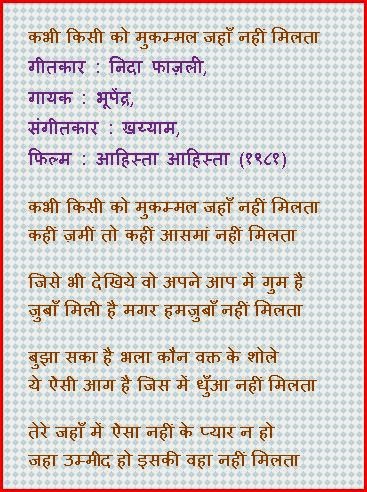 कभी किसी को मुकम्मल जहाँ नहीं मिलता
गीतकार : निदा फाज़ली,
गायक : भूपेंद्र,
संगीतकार : खय्याम,
फिल्म : आहिस्ता आहिस्ता (१९८१)
कभी किसी को मुकम्मल जहाँ नहीं मिलता
कहीं ज़मीं तो कहीं आसमां नहीं मिलता
जिसे भी देखिये वो अपने आप में गुम है
जुबाँ मिली है मगर हमजुबाँ नहीं मिलता
बुझा सका है भला कौन वक्त के शोले
ये ऐसी आग है जिस में धुँआ नहीं मिलता
तेरे जहाँ में ऐसा नहीं के प्यार न हो
जहा उम्मीद हो इसकी वहा नहीं मिलता